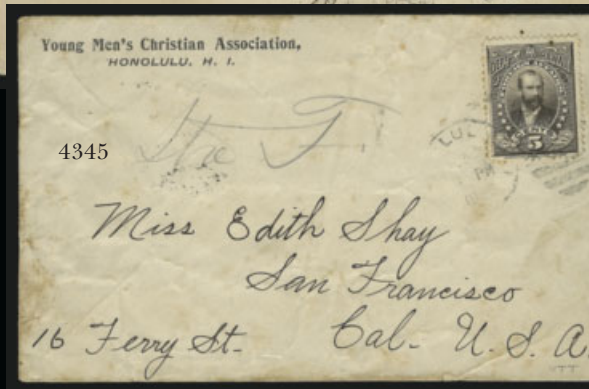 Young Men's Christian Association,
HONOLULU, H. I.
5
4345
Miss Edith Shay
San Francisco
16 Ferry St. Cal. U. S. A.